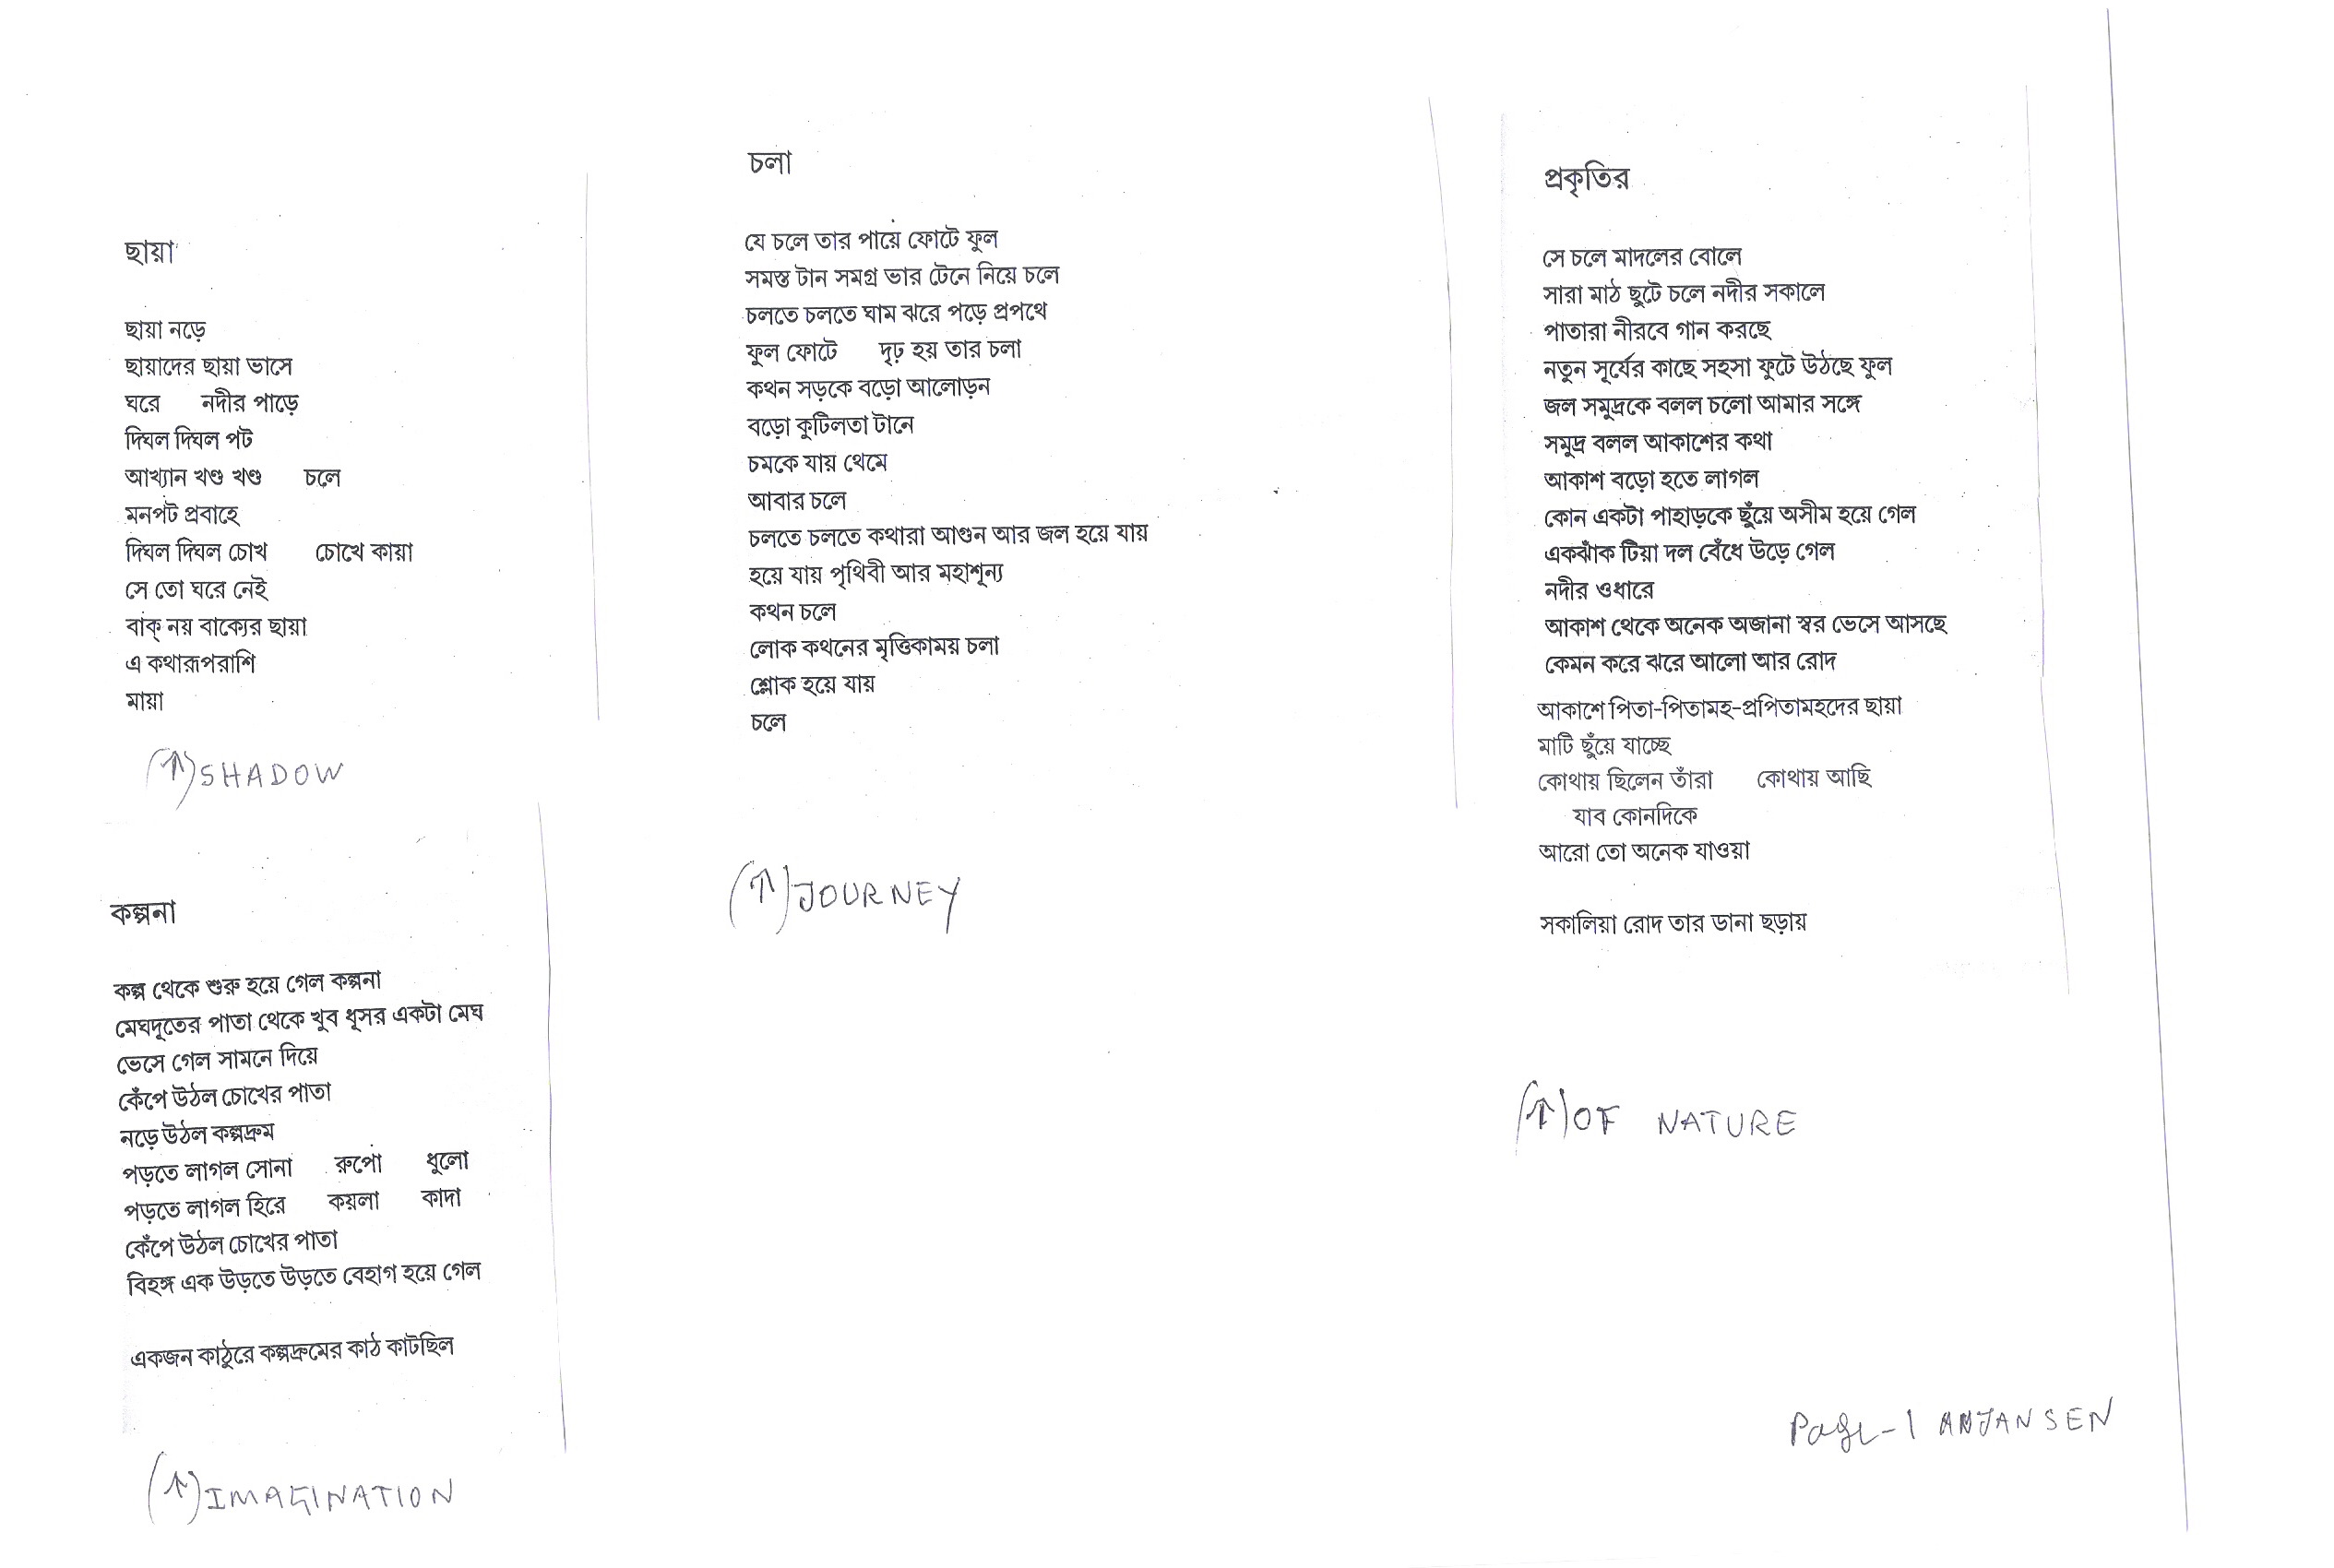 ছায়া
ছায়া নড়ে
ছায়াদের ছায়া ভাসে
ঘরে নদীর পাড়ে
দিঘল দিঘল পট
আখ্যান খণ্ড খণ্ড চলে
মনপট প্রবাহে
দিঘল দিঘল চোখ চোখে কায়া
সে তো ঘরে নেই
বাক্ নয় বাক্যের ছায়া
এ কথারূপরাশি
মায়া
(↑) SHADOW
কল্পনা
কল্প থেকে শুরু হয়ে গেল কল্পনা
মেঘদূতের পাতা থেকে খুব ধূসর একটা মেঘ
ভেসে গেল সামনে দিয়ে
কেঁপে উঠল চোখের পাতা
নড়ে উঠল কল্পদ্রুম
পড়তে লাগল সোনা রুপো ধুলো
পড়তে লাগল হিরে কয়লা কাদা
কেঁপে উঠল চোখের পাতা
বিহঙ্গ এক উড়তে উড়তে বেহাগ হয়ে গেল
একজন কাঠুরে কল্পদ্রুমের কাঠ কাটছিল
(↑) IMAGINATION
চলা
যে চলে তার পায়ে ফোটে ফুল
সমস্ত টান সমগ্র ভার টেনে নিয়ে চলে
চলতে চলতে ঘাম ঝরে পড়ে প্রপথে
ফুল ফোটে দৃঢ় হয় তার চলা
কথন সড়কে বড়ো আলোড়ন
বড়ো কুটিলতা টানে
চমকে যায় থেমে
আবার চলে
চলতে চলতে কথারা আগুন আর জল হয়ে যায়
হয়ে যায় পৃথিবী আর মহাশূন্য
কথন চলে
লোক কথনের মৃত্তিকাময় চলা
শ্লোক হয়ে যায়
চলে
(↑) JOURNEY
প্রকৃতির
সে চলে মাদলের বোলে
সারা মাঠ ছুটে চলে নদীর সকালে
পাতারা নীরবে গান করছে
নতুন সূর্যের কাছে সহসা ফুটে উঠছে ফুল
জল সমুদ্রকে বলল চলো আমার সঙ্গে
সমুদ্র বলল আকাশের কথা
আকাশ বড়ো হতে লাগল
কোন একটা পাহাড়কে ছুঁয়ে অসীম হয়ে গেল
একঝাঁক টিয়া দল বেঁধে উড়ে গেল
নদীর ওধারে
আকাশ থেকে অনেক অজানা স্বর ভেসে আসছে
কেমন করে ঝরে আলো আর রোদ
আকাশে পিতা-পিতামহ-প্রপিতামহদের ছায়া
মাটি ছুঁয়ে যাচ্ছে
কোথায় ছিলেন তাঁরা কোথায় আছি
যাব কোনদিকে
আরো তো অনেক যাওয়া
সকালিয়া রোদ তার ডানা ছড়ায়
(↑) OF NATURE
Page-1 ANJANSEN